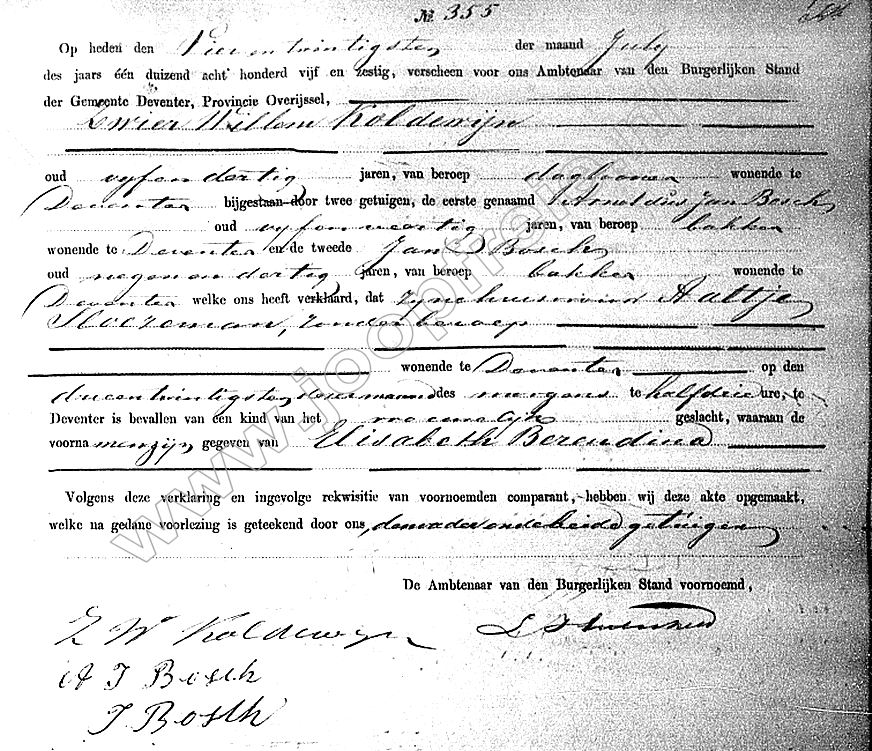 № 355
Op heden den Vier en twintigsten der maand July
des jaars één duizend acht honderd vijf en zestig, verscheen voor ons Ambtenaar van den Burgerlijken Stand
der Gemeente Deventer, Provincie Overijssel,
Zwier Willem Koldewijn
oud vyf en dertig jaren, van beroep daglooner wonende te
Deventer bijgestaan door twee getuigen, de eerste genaamd Arnoldus Jan Bosch
oud vyf en veertig jaren, van beroep bakker
wonende te Deventer en de tweede Jan Bosch
oud negen en dertig jaren, van beroep bakker wonende te
Deventer welke ons heeft verklaard, dat zyne huisvrouw Aaltje
zonder beroep
wonende te Deventer op den
drie en twintigsten dezer maand des morgens te half drie ure, te
Deventer is bevallen van een kind van het geslacht, waaraan de
voornamen zijn gegeven van Elisabeth Berendina
Volgens deze verklaring en ingevolge rekwisitie van voornoemden comparant, hebben wij deze akte opgemaakt,
welke na gedane voorlezing is geteekend door ons, den vader en de beide getuigen
De Ambtenaar van den Burgerlijken Stand voornoemd,
Z W Koldewyn
A J Bosch
J Bosch